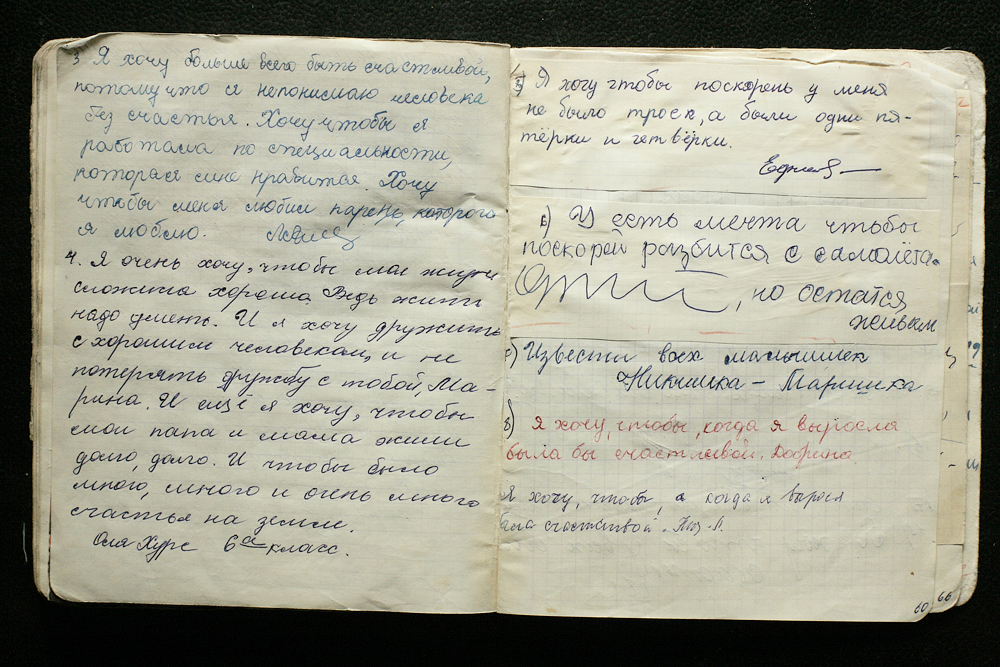 3 Я хочу больше всего быть счастливой,
потому что я непонимаю человека
без счастья. Хочу чтобы я
работала по специальности,
которая мне нравитая. Хочу
чтобы меня любил парень, которого
я люблю.
4. Я очень хочу, чтобы моя жизнь
сложила хорошо. Ведь жить
надо уметь. И я хочу дружить
с хорошим человеком, и не
потерять дружбу с тобой, Ма-
рина. И ещё я хочу, чтобы
мои папа и мама жили
долго, долго. И чтобы было
много, много и очень много
счастья на земле.
Оля Хурс 6а класс.
5) Я хочу чтобы поскорень у меня
не было троек, а были одни пя-
тёрки и четвёрки.
6) У есть мечта чтобы
поскорей разбится с самолёта.
, но остатся
живым
Извести всех малышилек
Никишка - Маришка
8) Я хочу, чтобы, когда я выросла
была бы счастливой.
Я хочу, чтобы, а когда я вырося
была счастливой.
60
66